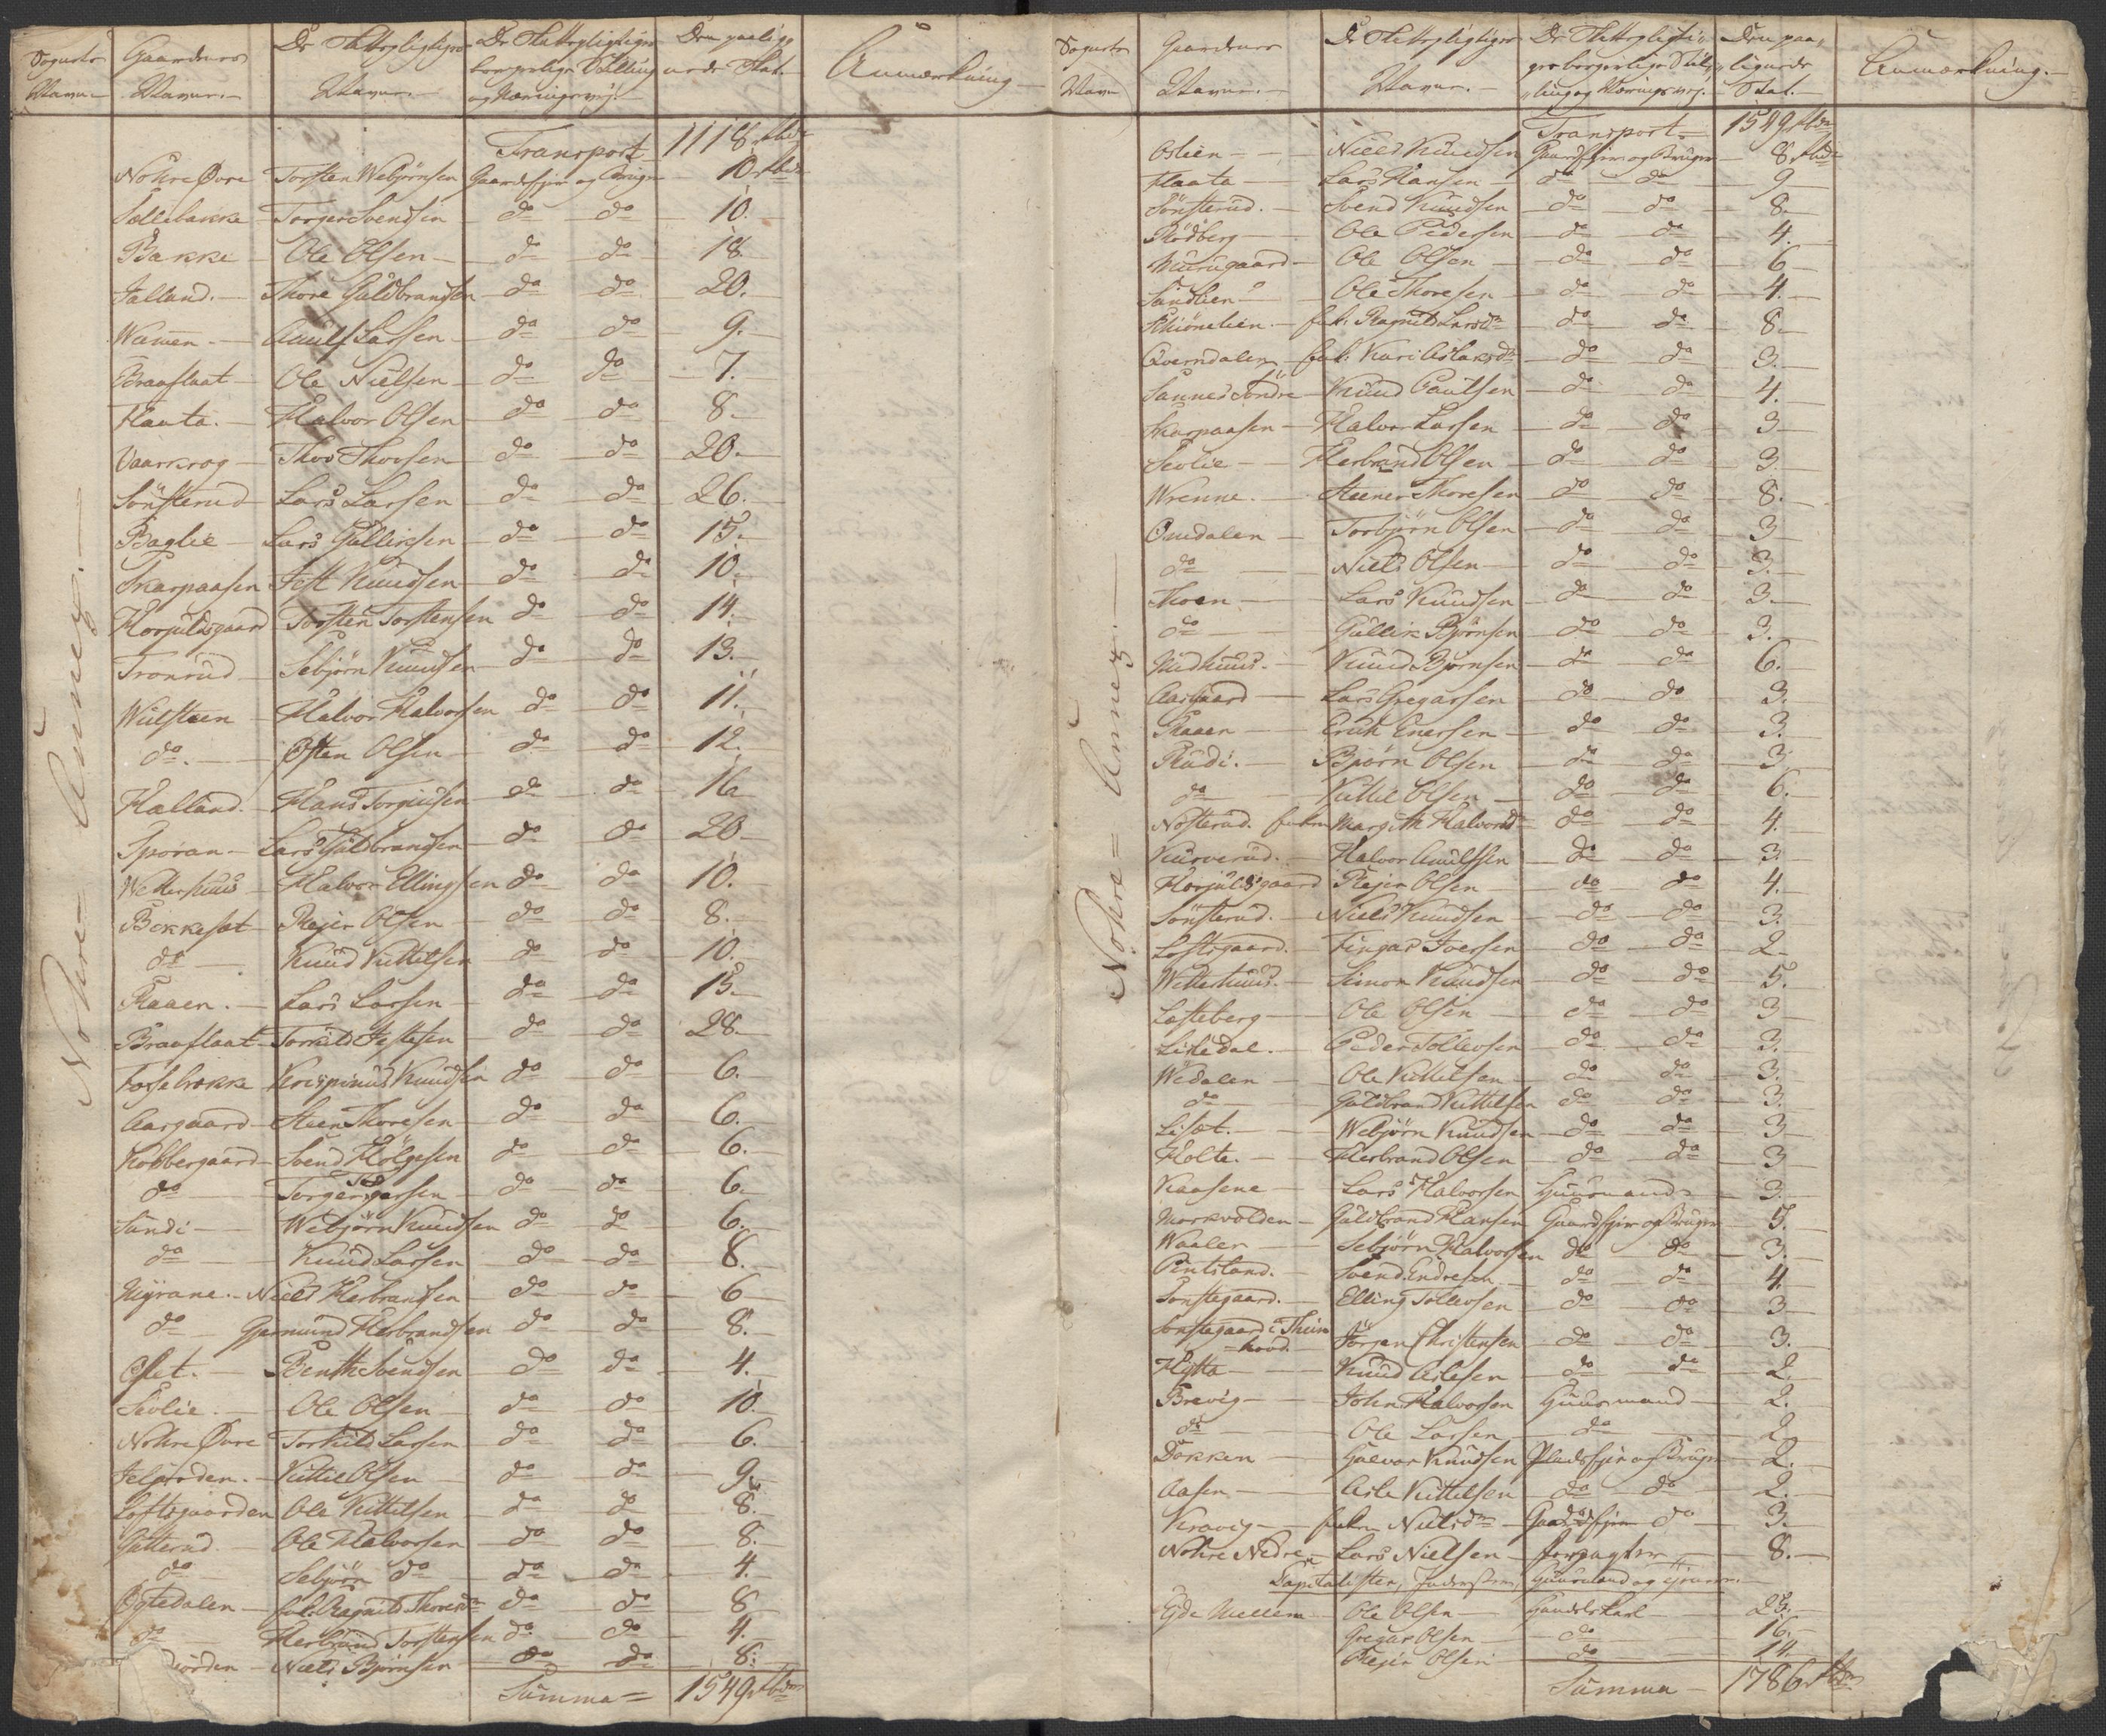 Sognets Navn.
Gaardenes Navne.
De Skattepligtiges Navne.
De Skattepligtiges borgerlige Stilling og Næringsvej.
Den paalignede Skat.
Anmærkning
Nohre= Annex.
Transport 1118 rbd
Nohre Øvre Torsten Webjørnsen Gaardsejer og Bruger 10 rbd
Sællebakke Torger Svendsen do do 10.
Bakke Ole Olsen do do 18.
Jalland. Thore Guldbrandsen do do 20.
Wamen. Anulf Larsen do do 9.
Braaflaat Ole Nielsen do do 7.
Flaata. Halvor Olsen do do 8.
Vaarkrog Thor Thorsen do do 20.
Sönsterud Lars Larsen do do 26.
Baglie Lars Gulliksen do do 15.
Skarpaasen Fest Knudsen do do 10.
Horjulsgaard Torsten Torstensen do do 14.
Tronrud Sebjørn Knudsen do do 13.
Wulsteen Halvor Halvorsen do do 11.
do. Østen Olsen do do 12.
Halland. Hans Torgiusen do do 16
Sporan Lars Guldbrandsen do do 20
Wetterhuus Halvor Ellingsen do do 10.
Bekkesæt Rejer Olsen do do 8.
do Knud Kittelsen do do 10.
Raaen. Lars Larsen do do 15.
Braaflaat Torkild Festesen do do 28.
Fossebrække Krispinus Knudsen do do 6.
Aasgaard Steen Thoresen do do 6.
Kobbergaard Svend Hölgesen do do 6.
do Torger do do 6.
Sundi Webjørn Knudsen do do 6.
do Knud Larsen do do 8.
Myrane. Niels Herbrandsen do do 6
do Gjermund Herbrandsen do do 8.
Oset. Benth Svendsen do do 4.
Sevlie. Ole Olsen do do 10
Nohre Øvre Torkild Larsen do do 6.
Kittil Olsen do do 9
Loftsgaarden Ole Kittelsen do do 8.
Gutterud Ole Halvorsen do do 8.
do Sebjörn do do do 4.
Ögtedalen Enk. Ragnild Thoresd. do do 8
do Herbrand Torstensen do do 4.
Niels Björnsen do do 8.
Summa = 1549 rbd
Sognets Navn
Gaardenes Navne.
De Skattepligtiges Navne.
De Skattepligtiges borgerlige Stilling og Næringsvej.
Den paalignede Skat.
Anmærkning.
Nohre= Annex.
Transport. 1549 rbd
Oslien Niels Knudsen Gaardsejer og Bruger 8 rbd
Flaata Lars Hansen do do 9
Sönsterud. Svend Knudsen do do 8.
Rödberg Ole Pedersen do do 4.
Murugaard Ole Olsen do do 6
Sandlien Ole Thoresen do do 4.
Skiönelien. Enk. Ragnild Larsd. do do 8.
Qverndalen Enk. Kari Aslaksd. do do 3.
Sannes Söndre Knud Paulsen do do 4.
Skarpaasen Halvor Larsen do do 3
Sevlie Herbrand Olsen do do 3.
Wrenne. Steener Thoresen do do 8.
Omdalen Torbjörn Olsen do do 3
do Niels Olsen do do 3.
Thoen Lars Knudsen do do 3.
do Gullik Björnsen do do 3.
Midhuus. Knud Bjørnsen do do 6.
Aasgaard Lars Gregarsen do do 3.
Raaen Erik Enersen do do 3.
Rudi. Bjørn Olsen do do 3
do Kittil Olsen do do 6.
Nösterud. Enken Margith Halvorsd. do do 4.
Kurverud. Halvor Anulfsen do do 3.
Horjulsgaard Rejer Olsen do do 4.
Sönsterud. Niels Knudsen do do 3.
Loftsgaard. Fingar Iversen do do 2
Wetterhuus. Simon Knudsen do do 5.
Læsteberg Ole Olsen do do 3
Lisledal. Peder Tollevsen do do 3.
Wedalen Ole Kittelsen do do 3.
do Guldbrand Kittelsen do do 3.
Lisæt. Webjörn Knudsen do do 3
Holte. Herbrand Olsen do do 3
Kaasene Lars Halvorsen Huusmand 3.
Morkvolden Guldbrand Hansen Gaardsejer og Bruger 5.
Waaler Sebjörn Halvorsen do do 3.
Pentsland. Svend Endresen do do 4
Tonstegaard. Elling Tollevsen do do 3
Tonstegaard i Thinhovd. Jörgen Christensen do do 3.
Hytta Knud Aslesen do do 2.
Brevig John Halvorsen Huusmand 2.
do Ole Larsen do 2
Bakken Halvor Knudsen Pladsejer og Bruger 2.
Aasen Asle Kittelsen do do 2.
Kravig Enken Nielsd. Gaardsejer do 3.
Nohre Nedre Lars Nielsen forpagter 8.
Capitalister, Inderster, Huusmænd og Tjenere.
Ejde Mellem Ole Olsen Handelskarl 28.
Gregar Olsen do 16.
Rejer Olsen do 14.
Summa 1786 rbd